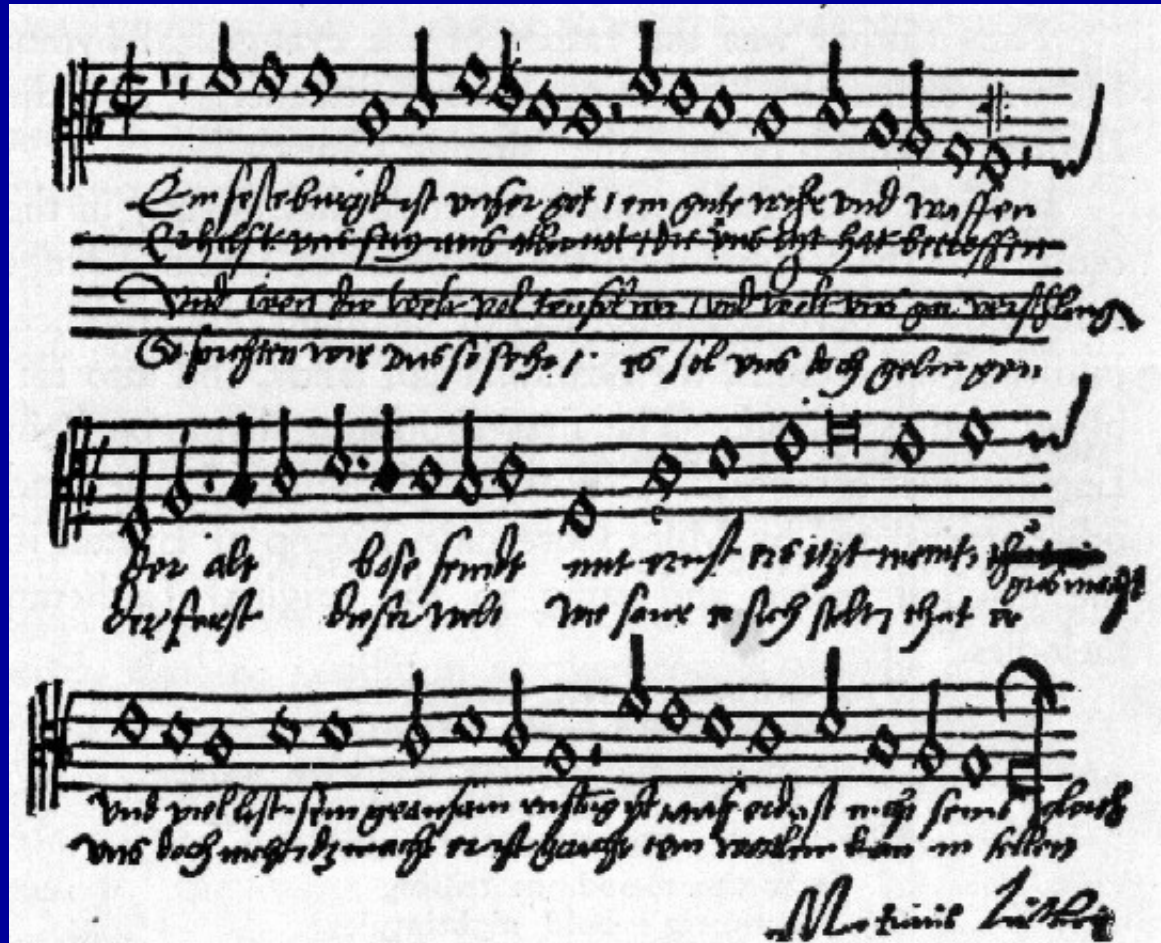 Ein feste burgk ist vnser got / ein gute wehr vnd waffen
Er hilfft vns frey aus aller not / die vns itzt hat betroffen
Vnd wen die welt vol teufel wer / vnd wolt vns gar verschling
So furchten wir vns so sehr / es sol vns doch gelingen
Der alt bose feindt mit ernst ers itzt meint
gros macht
Der furst dieser welt wie saur er sich stelt / thut er
vnd viel list sein grausam rustung ist / auf erd ist nicht seins gleich
vns doch nicht dz macht er ist gericht / ein wortlin kan in fellen
Martinus Luther